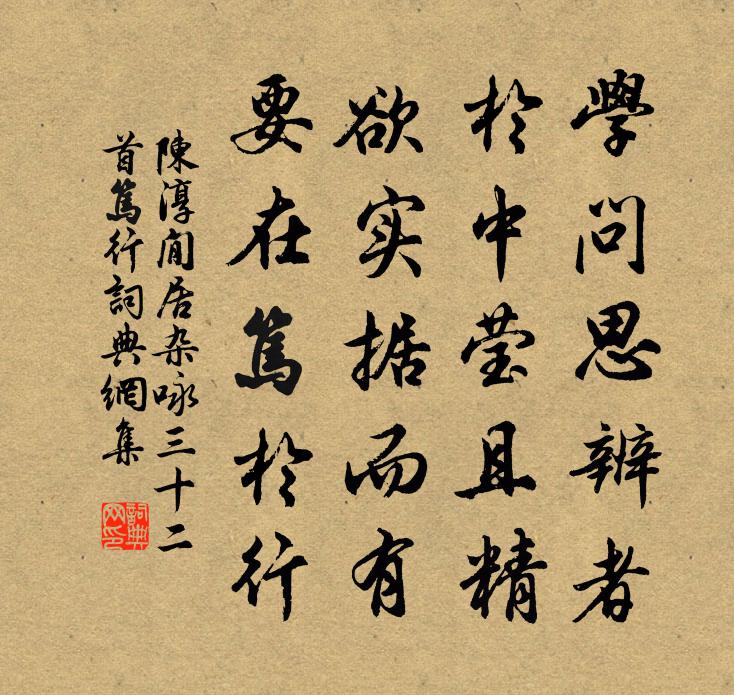 學問思辨者
於中莹且精
欲实据而有
要在篤於行
陳淳閒居杂咏三十二
首篤行詞典網集
詞典
网印